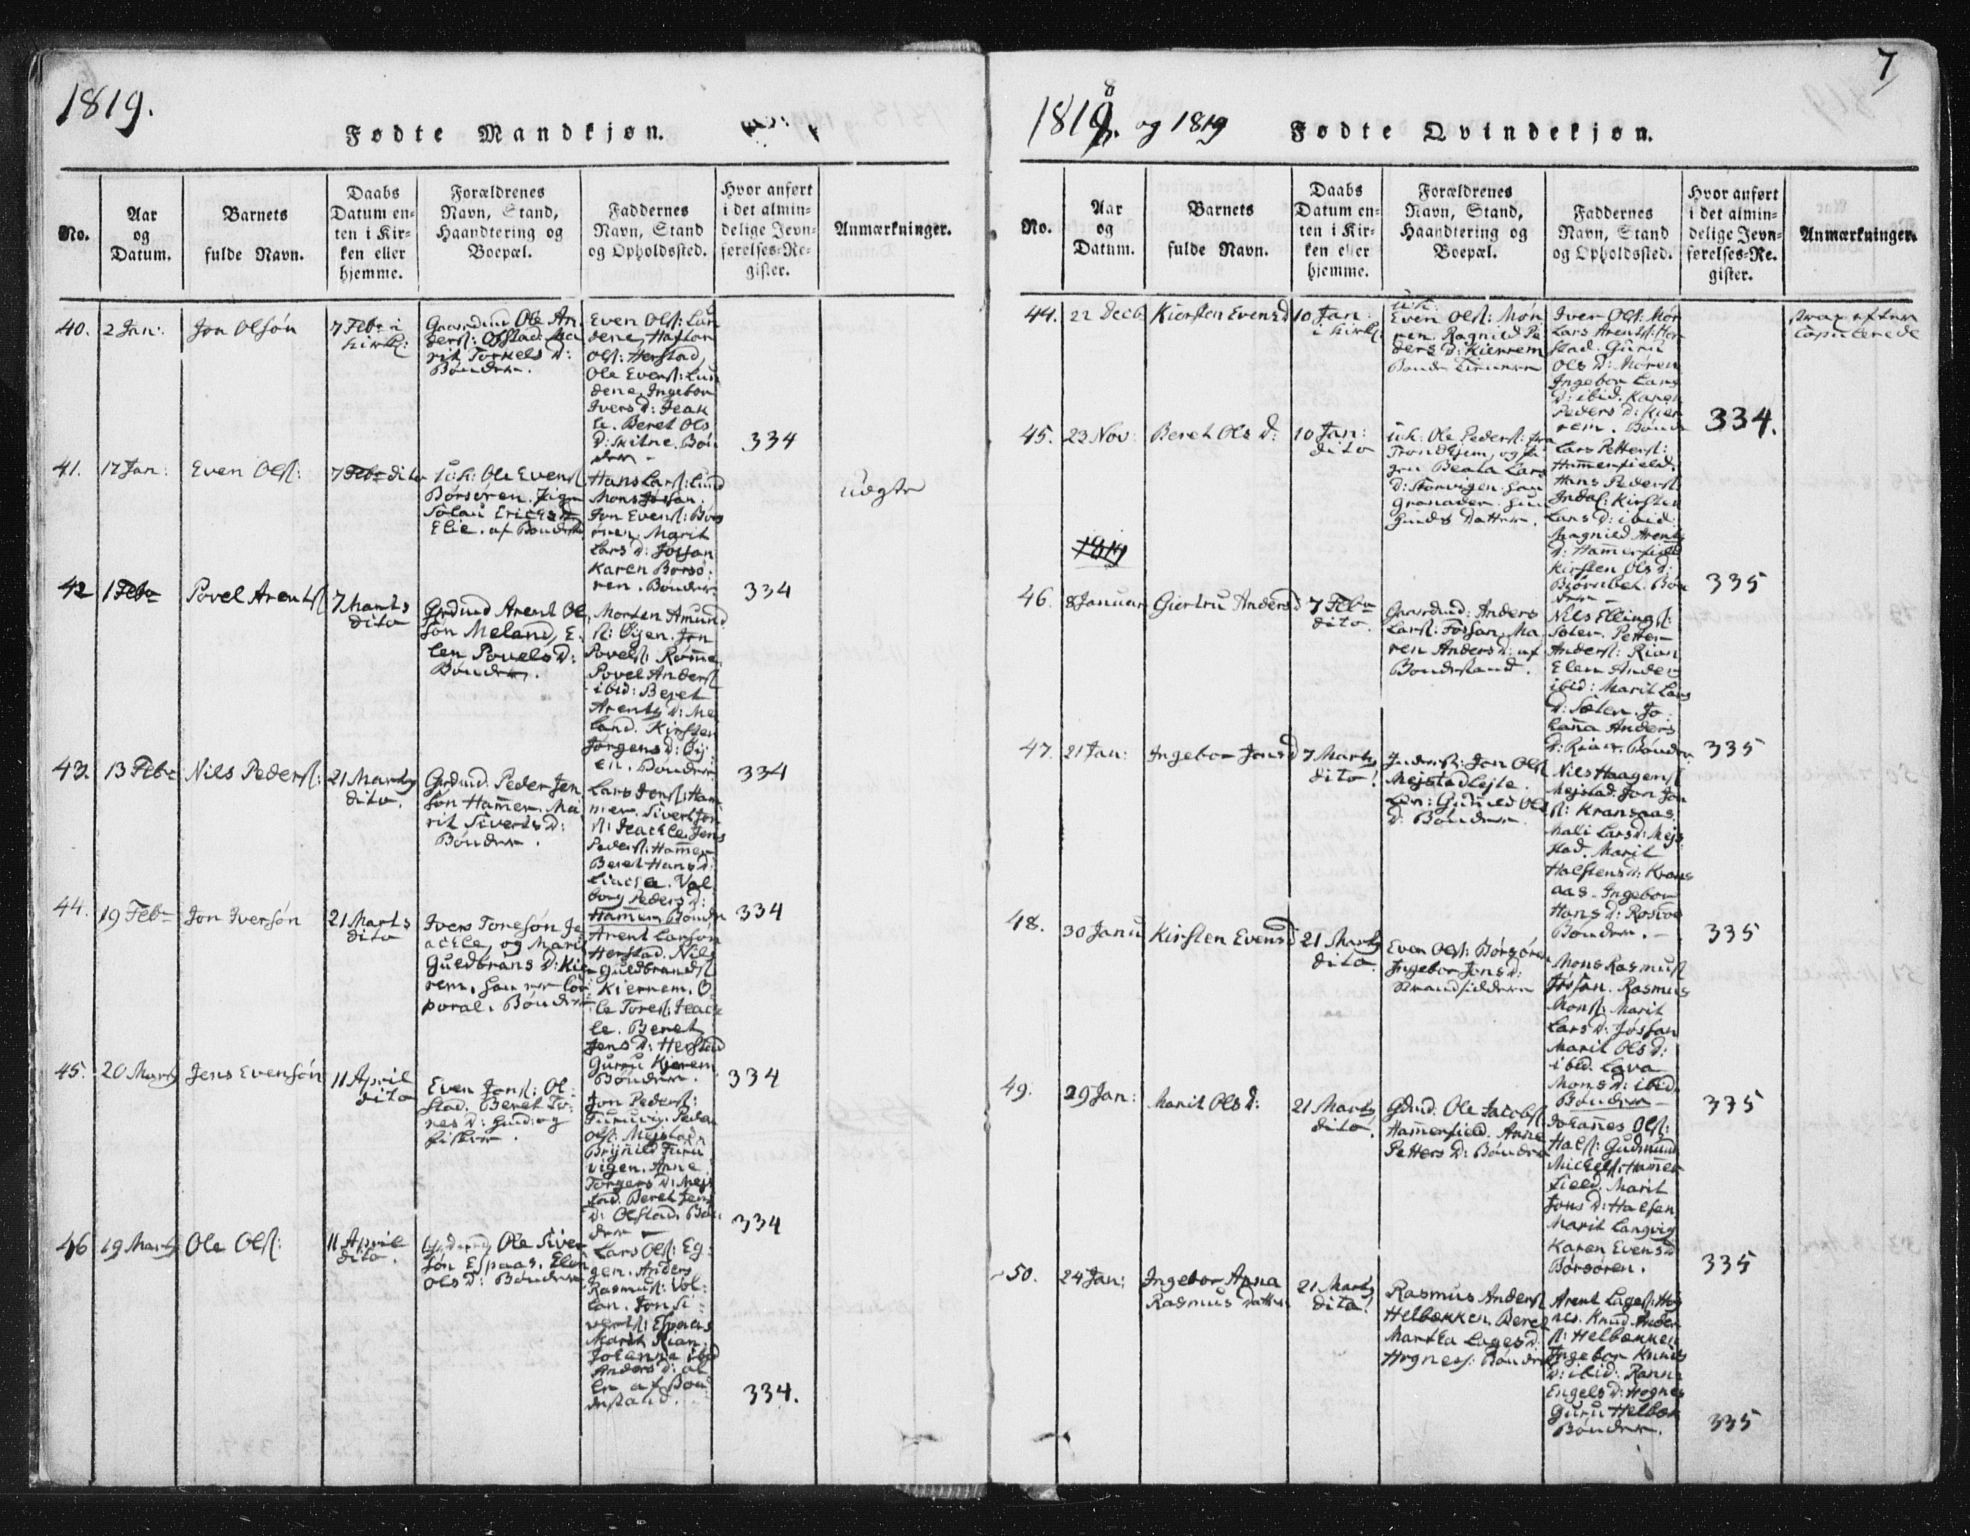 1819.
Fødte Mandkjøn.
No.
Aar
og
Datum.
Barnets
fulde Navn.
Daabs
Datum en-
ten i Kir-
ken eller
hjemme.
Forældrenes
Navn, Stand,
Haandtering og
Boepæl.
Faddernes
Navn, Stand
og Opholdssted.
Hvor anført
i det almin-
delige Jevn-
førelses-Re-
gister.
Anmærkninger.
40.
2 Jan:
Jon Olsøn
7 Febr i
kirk:
Gaardmd Ole An
ders: Ofstad. Ma
rit Torkels D:
Bønder.
Even Ols: Lun
dene, Haftor
Ols: Herstad,
Ole Evens: Lun
dene. Ingebor
Ivers D: Jeak
le. Beret Ols
D: Skitne. Bøn
der -
334
41.
17 Jan:
Even Ols:
7 Febr dito
u.k: Ole Evens
Børsøren. Pigen
Solaui Ericks D
Elie. af Bondest
Hans Lars: Lund
Mons Jossan.
Jon Evens: Børs
øren. Marit
Lars D: Jossan
Karen Børsø-
ren. Bønder
334
uægte
42
1 Febr
Povel Arents:
7 Marts
dito
Grdmd Arent Ol
søn Meland, E-
len Povels D:
Bønder.
Morten Amund
s: Øyen. Jon
Povels: Rømme.
Povel Anders
ibid: Beret
Arents D: Me
land. Kirsten
Jørgens D: Øy-
en. Bønder
334
43.
13 Febr
Nils Peders:
21 Marts
dito.
Grdmd. Peder Jen
søn Hammer. Ma
rit Siverts D:
Bønder.
Lars Jons: Ham
mer. Sivert Jon
s: Jeackle. Jens
Peders: Hammer
Beret Hans D:
Liacka. Val
borg Peders D:
Hammer. Bønder
334
44.
19 Febr
Jon Iversøn
21 Marts
dito
Ivers Tonesøn Je
ackle, og Marit
Guldbrans D: Kier
rem. Han er Cor
poral. Bønder
Arent Larsøn
Herstad. Nils
Guldbrands
Kiernem. O-
le Tores: Jeack
le. Beret
Jens D: Herstad
Gurru Kjerem
Bønder.
334
45.
20 Marts
Jens Evensøn
11 April
dito
Even Jons: Ol-
stad. Beret To-
nes D: Husd: og
fisker.
Jon Peders:
Furuvig. Peder
Ols: Mejstad
Brynild Furu
vigen. Anne
Torgers D: Mejs
tad. Beret Jens
D: Olstad. Bøn-
der -
334
46
19 Marts
Ole Ols:
11 April
dito.
Grdmd Ole Siver
søn Espaas. Elen
Ols D: Bønder
Lars Ols: Eg-
gen. Anders
Rasmus: Vol-
lan. Jon Si-
verts: Espaas
Marit Rian.
Johanna ibd
Anders D: al
le af Bon
destand.
334.
7
1818. og 1819
Fødte Qvindekjøn.
No.
Aar
og
Datum.
Barnets
fulde Navn.
Daabs
Datum en-
ten i Kir-
ken eller
hjemme.
Forældrenes
Navn, Stand,
Haandtering og
Boepæl.
Faddernes
Navn, Stand
og Opholdssted.
Hvor anført
i det almin-
delige Jevn-
førelses-Re-
gister.
Anmærkninger.
44.
22 Decb
Kiersten Evens D
10 Jan:
i kirk:
u.k:
Even Ols: Møn
ren. Ragnild Pe
ders D: Kierrem
Iver Ols: Mør
Lars Arents: Her
stad. Guru
Ols D: Møren
Ingebor Lars
D: ibid. Karen
Peders D: Kier
rem. Bønd
334.
strax efter
Copulerede
45.
23 Nov:
Beret Ols D:
10 Jan:
dito
u:k: Ole Peders: fra
Trondhjem, og Pi
gen Beata Lars
D: Storvigen. Han
Granader. Hun
Husds Datter.
Lars Petters:
Hammerfield.
Hans Peders:
Indal: Kirsten
Lars D: ibid.
Magnild Arents
D: Hammerfield
Kirsten Ols D:
Biørnbet. Bøn
der -
335
1819
46.
8 Januar
Giertru Anders D
7 Febr
dito.
Gaardmd: Anders
Lars: Fossan, Ma
ren Anders D: af
Bondestand.
Nils Ellings:
Solen. Petter
Anders: Rian
Elen Ander
ibid: Marit Lars
D: Solen. Jo-
hanna Anders
D: Rian. Bønder
335
47.
21 Jan:
Ingebor Jons D
7 Marts
dito!
Inders: Jon Ols
Mejstadlejte.
Gunild Ols
D: Bønder.
Nils Haagens
Mejstad. Jon Jon
s: Kransaas
Mali Lars D: Mejs
stad. Marit
Halstens D: Krans
aas. Ingebor
Hans D: Rosvoe
Bønder. -
335
48.
30 Janu
Kirsten Evens D
21 Marts
dito.
Even Ols: Børsøren
Ingebor Jons D:
Strandsiddere
Mons Rasmus:
Jossan. Rasmus
Mons: Marit
Lars D: Jossan
Marit Ols D:
ibid. Lava
Mons D: ibid.
Bønder -
335
49.
29 Jan:
Marit Ols D:
21 Marts
dito.
Gdmd. Ole Jacobs:
Hammerfield. Anne
Petters D: Bønder
Johannes Ols:
Hals: Gudmund
Michels: Hammer
field. Marit
Jons D: Halsen
Marit Langvig
Karen Evens D
Børsøren.
335
50.
24 Jan:
Ingebor Anna
Rasmus Datter
21 Marts
dito!
Rasmus Anders
Helbækken. Beret
Martha Lages D:
Hognes: Bønder
Arent Lages: Hog
nes. Knud Ander
s: Helbækken
Ingebor Knuds
D: ibid. Ranni
Engels D: Hognes
Guru Helbæk
Bønder.
335